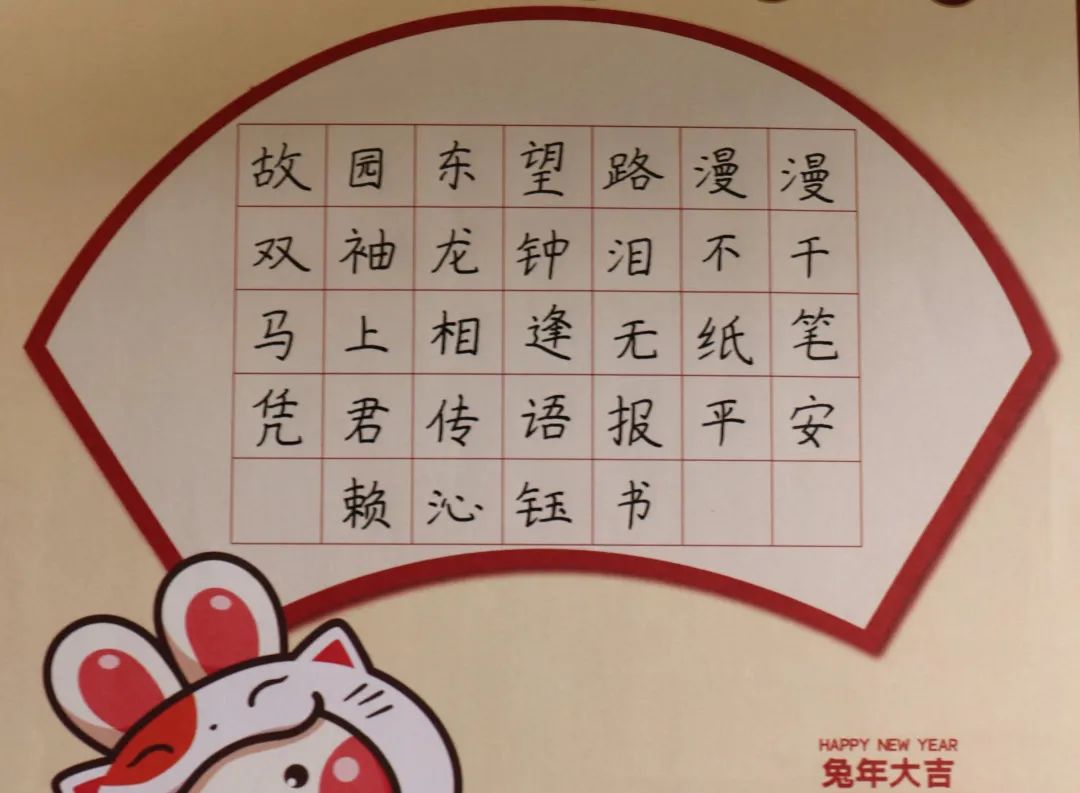 故园东望路漫漫
双袖龙钟泪不干
马上相逢无纸笔
凭君传语报平安
赖沁钰书
HAPPY NEW YEAR
兔年大吉